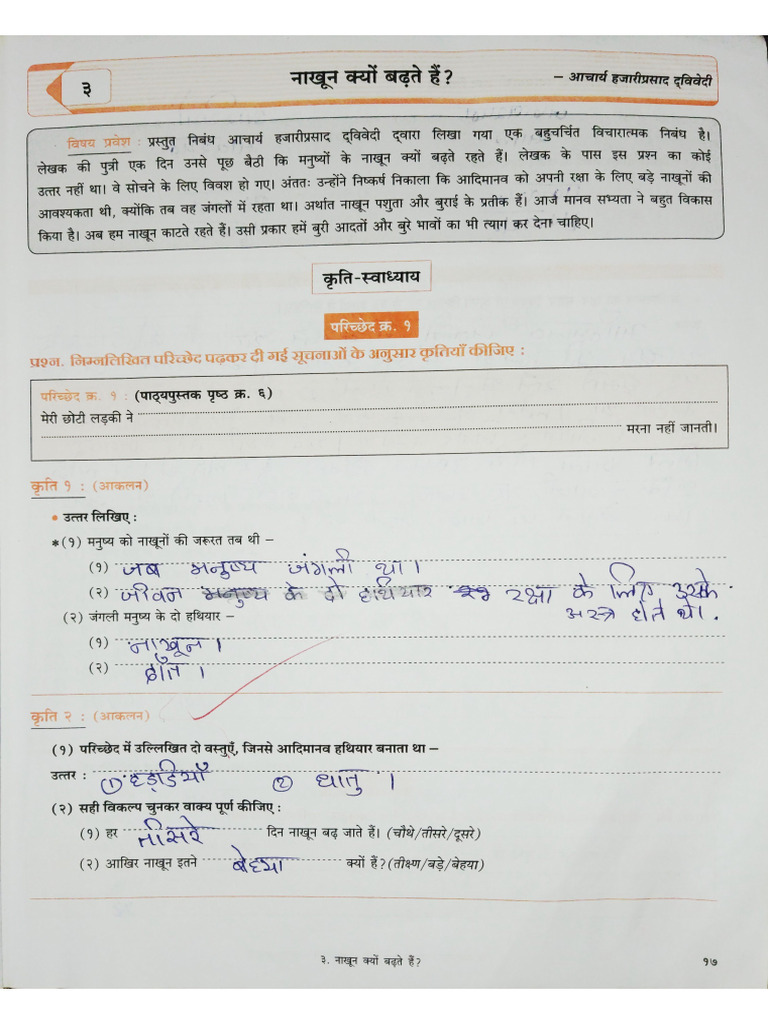 ३
नाखून क्यों बढ़ते हैं?
– आचार्य हजारीप्रसाद द्विवेदी
विषय प्रवेश : प्रस्तुत निबंध आचार्य हजारीप्रसाद द्विवेदी द्वारा लिखा गया एक बहुचर्चित विचारात्मक निबंध है।
लेखक की पुत्री एक दिन उनसे पूछ बैठी कि मनुष्यों के नाखून क्यों बढ़ते रहते हैं। लेखक के पास इस प्रश्न का कोई
उत्तर नहीं था। वे सोचने के लिए विवश हो गए। अंततः उन्होंने निष्कर्ष निकाला कि आदिमानव को अपनी रक्षा के लिए बड़े नाखूनों की
आवश्यकता थी, क्योंकि तब वह जंगलों में रहता था। अर्थात नाखून पशुता और बुराई के प्रतीक हैं। आज मानव सभ्यता ने बहुत विकास
किया है। अब हम नाखून काटते रहते हैं। उसी प्रकार हमें बुरी आदतों और बुरे भावों का भी त्याग कर देना चाहिए।
कृति-स्वाध्याय
परिच्छेद क्र. १
प्रश्न. निम्नलिखित परिच्छेद पढ़कर दी गई सूचनाओं के अनुसार कृतियाँ कीजिए :
परिच्छेद क्र. १ : (पाठ्यपुस्तक पृष्ठ क्र. ६)
मेरी छोटी लड़की ने
मरना नहीं जानती।
कृति १ : (आकलन)
• उत्तर लिखिए :
*(१) मनुष्य को नाखूनों की जरूरत तब थी –
(१) जब मनुष्य जंगली था।
(२) जीवन मनुष्य के दो हथियार रक्षा के लिए उसके
अस्त्र होते थे।
(२) जंगली मनुष्य के दो हथियार –
(१) नाखून।
(२) दाँत।
कृति २ : (आकलन)
(१) परिच्छेद में उल्लिखित दो वस्तुएँ, जिनसे आदिमानव हथियार बनाता था –
उत्तर : ① हड्डियाँ ② धातु।
(२) सही विकल्प चुनकर वाक्य पूर्ण कीजिए :
(१) हर तीसरे दिन नाखून बढ़ जाते हैं। (चौथे/तीसरे/दूसरे)
(२) आखिर नाखून इतने बेहया क्यों हैं? (तीक्ष्ण/बड़े/बेहया)
३. नाखून क्यों बढ़ते हैं?
१७